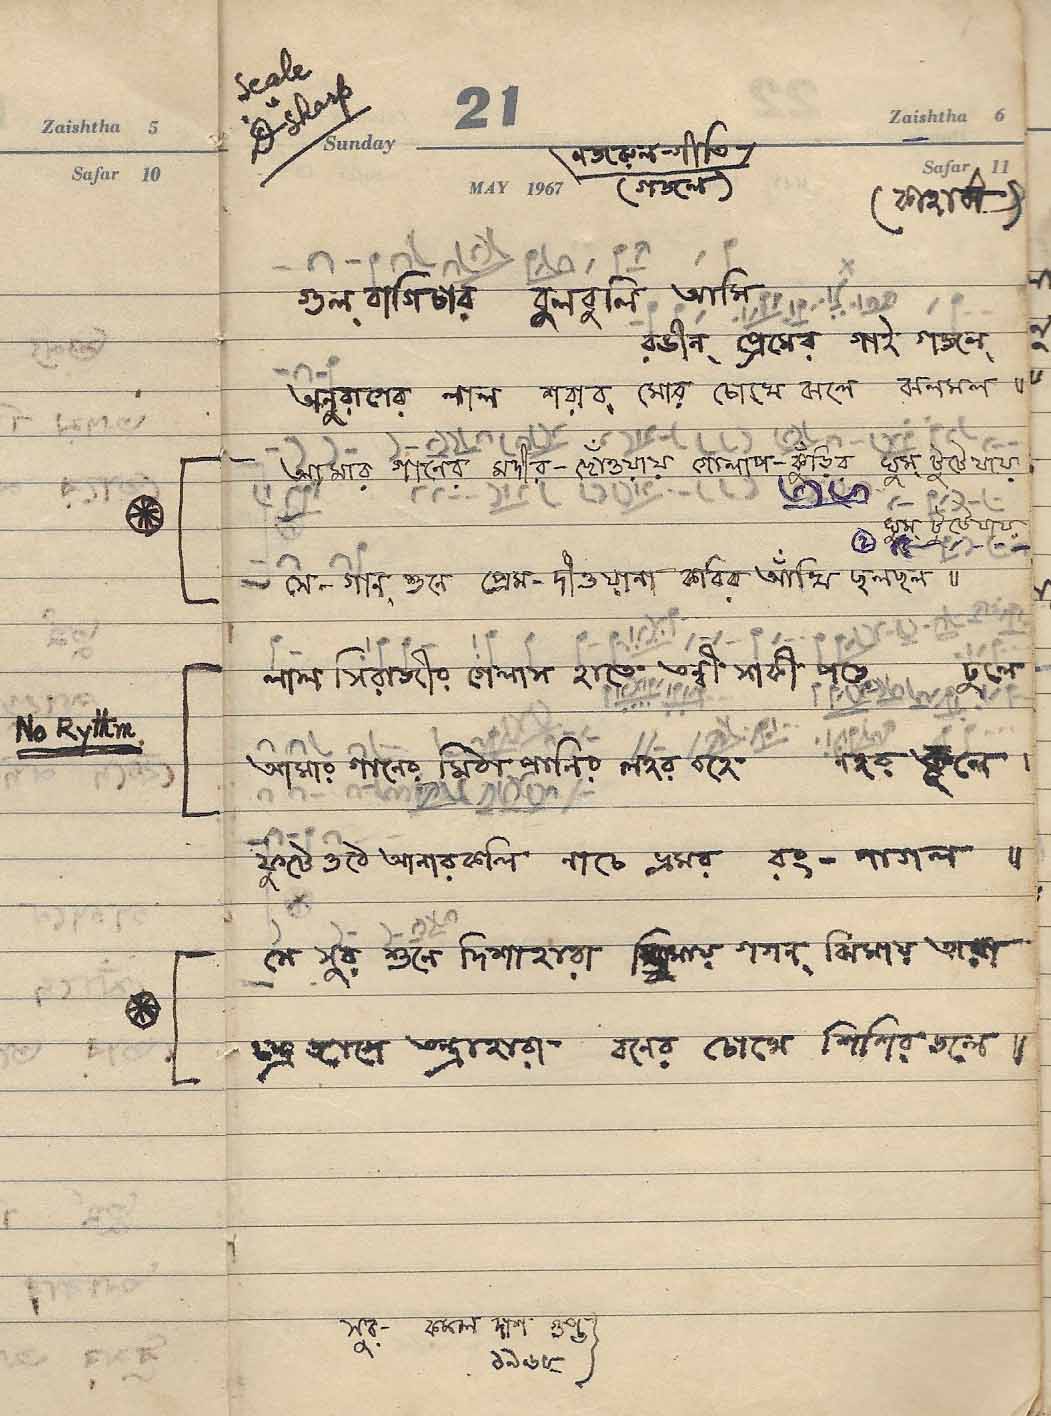 Scale
"D" Sharp
21
Zaishtha 5
Zaishtha 6
Sunday
Safar 10
Safar 11
MAY 1967
নজরুল-গীতি
(গজল)
(কাহার্বা)
গুল্ বাগিচার বুলবুলি আমি
রঙীন্ প্রেমের গাই গজল্
অনুরাগের লাল শরাব্ মোর চোখে ঝলে ঝলমল ॥
আমার গানের মদীর-ছোঁওয়ায় গোলাপ-কুঁড়ির ঘুম্ টুটে যায়
ঘুম্ টুটে যায়
সে-গান্ শুনে প্রেম-দীওয়ানা কবির আঁখি ছলছল ॥
লাল সিরাজীর গেলাস হাতে তন্বী সাকী পড়ে ঢুলে
No Rythm.
আমার গানের মিঠা পানির লহর বহে নহর কূলে ।
ফুটে ওঠে আনারকলি নাচে ভ্রমর রং-পাগল ॥
সে সুর শুনে দিশাহারা ঝিমায় গগন্ ঝিমায় তারা
চন্দ্র জাগে তন্দ্রাহারা বনের চোখে শিশির জলে ॥
সুর- কমল দাশ গুপ্ত